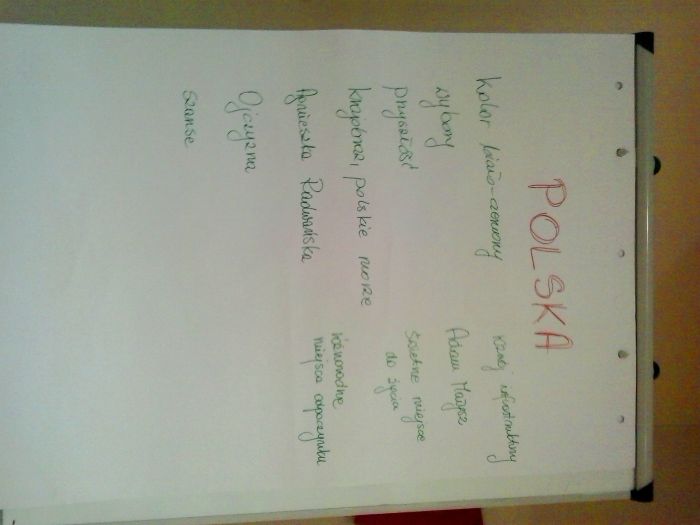 POLSKA
Kolor biało-czerwony
wybory
przyszłość
krajobraz, polskie morze
Agnieszka Radwańska
Ojczyzna
szanse
rozwój infrastruktury
Adam Małysz
Świetne miejsce
do życia
różnorodne
miejsca odpoczynku